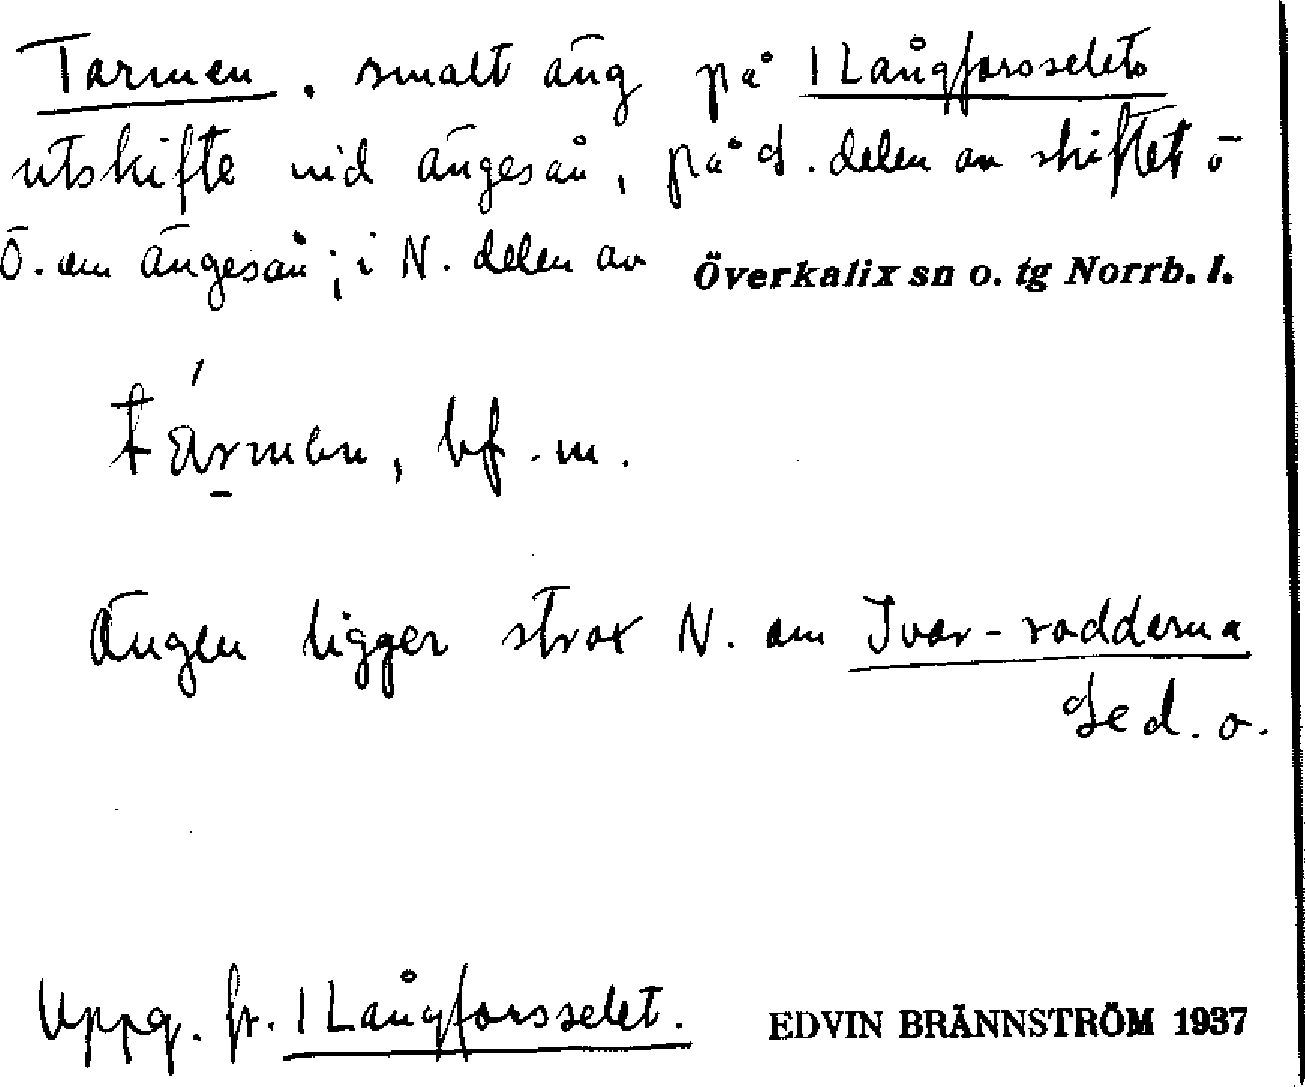 Tarmen. smalt äng på 1 Långforsselets
utskifte vid Ängesån, på d. delen av skiftet
Ö. om Ängesån; i N. delen av Överkalix sn o. tg Norrb. l.
tármen, bf. m.
Ängen ligger strax N. om Ivar-raddarna
Se d. o.
Uppg. fr. 1 Långforsselet. EDVIN BRÄNNSTRÖM 1937